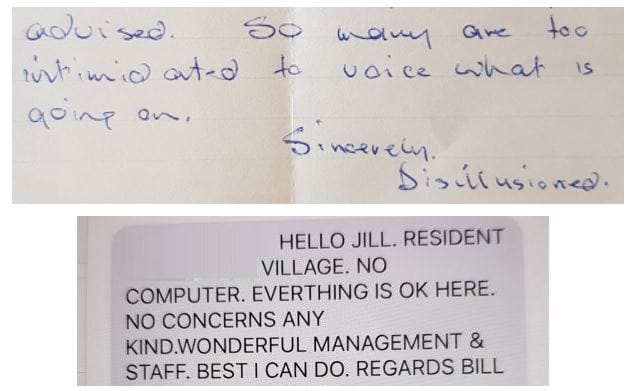 advised. So many are too
intimidated to voice what is
going on.
Sincerely.
Disillusioned.
HELLO JILL. RESIDENT
VILLAGE. NO
COMPUTER. EVERTHING IS OK HERE.
NO CONCERNS ANY
KIND.WONDERFUL MANAGEMENT &
STAFF. BEST I CAN DO. REGARDS BILL